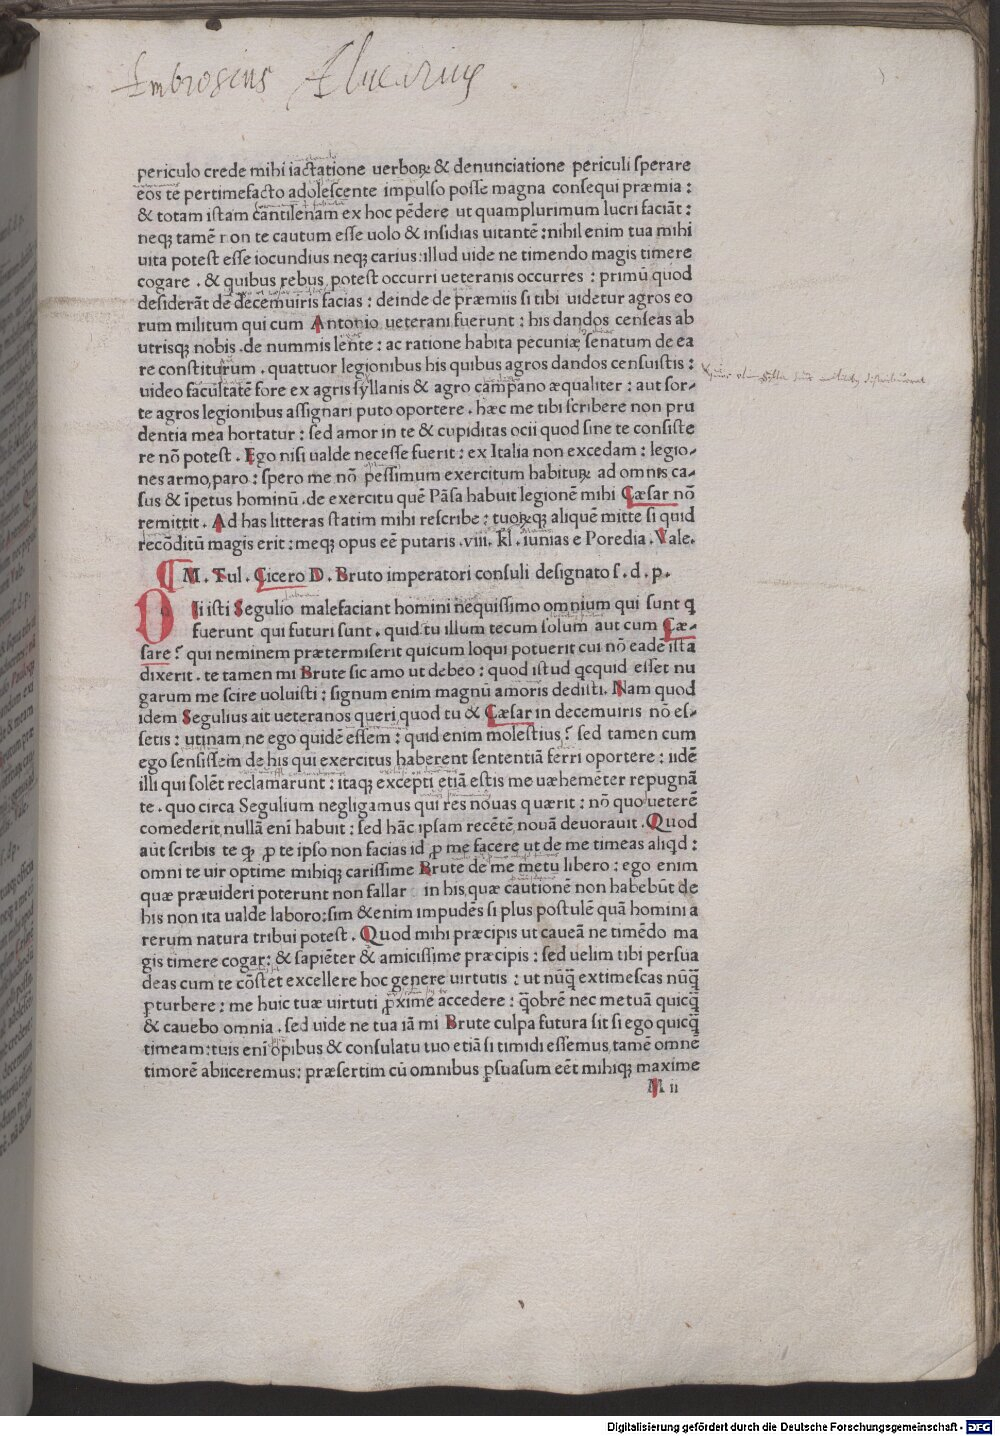 Ambrosius
periculo crede mihi iactatione uerboꝝ & denunciatione periculi sperare
eos te pertimefacto adolescente impulso posse magna consequi præmia :
& totam istam cantilenam ex hoc pēdere ut quamplurimum lucri faciāt :
neqꝫ tamē non te cautum esse uolo & insidias uitantē : nihil enim tua mihi
uita potest esse iocundius neqꝫ carius : illud uide ne timendo magis timere
cogare . & quibus rebus potest occurri ueteranis occurres : primū quod
desiderāt de decemuiris facias : deinde de præmiis si tibi uidetur agros eo
rum militum qui cum Antonio ueterani fuerunt : his dandos censeas ab
utrisqꝫ nobis . de nummis lente : ac ratione habita pecuniæ senatum de ea
re constiturum . quattuor legionibus his quibus agros dandos censuistis :
uideo facultatē fore ex agris syllanis & agro campano æqualiter : aut sor-
te agros legionibus assignari puto oportere . hæc me tibi scribere non pru
dentia mea hortatur : sed amor in te & cupiditas ocii quod sine te consiste
re nō potest . Ego nisi ualde necesse fuerit : ex Italia non excedam : legio-
nes armo, paro : spero me nō pessimum exercitum habituꝝ ad omnis ca-
sus & īpetus hominū . de exercitu quē Pāsa habuit legionē mihi Cæsar nō
remittit . Ad has litteras statim mihi rescribe : tuoꝝqꝫ aliquē mitte si quid
recōditū magis erit : meqꝫ opus eē putaris . viii . kl . iunias e Poredia . Vale .
M . Tul . Cicero D . Bruto imperatori consuli designato s . d . p .
Dii isti Segulio malefaciant homini nequissimo omnium qui sunt q
fuerunt qui futuri sunt . quid tu illum tecum solum aut cum Cæ-
sare ? qui neminem prætermiserit quicum loqui potuerit cui nō eadē ista
dixerit . te tamen mi Brute sic amo ut debeo : quod istud qcquid esset nu
garum me scire uoluisti : signum enim magnū amoris dedisti . Nam quod
idem Segulius ait ueteranos queri quod tu & Cæsar in decemuiris nō es-
setis : utinam ne ego quidē essem : quid enim molestius ? sed tamen cum
ego sensissem de his qui exercitus haberent sententiā ferri oportere : iidē
illi qui solēt reclamarunt : itaqꝫ excepti etiā estis me uæhemēter repugnā
te . quo circa Segulium negligamus qui res nouas quærit : nō quo ueterē
comederit, nullā enī habuit : sed hāc ipsam recētē nouā deuorauit . Quod
aūt scribis te qꝫ ꝓ te ipso non facias id ꝓ me facere ut de me timeas aliqd :
omni te uir optime mihiqꝫ carissime Brute de me metu libero : ego enim
quæ præuideri poterunt non fallar in his, quæ cautionē non habebūt de
his non ita ualde laboro : sim & enim impudēs si plus postulē quā homini a
rerum natura tribui potest . Quod mihi præcipis ut caueā ne timēdo ma
gis timere cogar : & sapiēter & amicissime præcipis : sed uelim tibi persua
deas cum te cōstet excellere hoc genere uirtutis : ut nūq̄ extimescas nūq̄
ꝑturbere : me huic tuæ uirtuti ꝓxime accedere : q̄obrē nec metuā quicq̄
& cauebo omnia . sed uide ne tua iā mi Brute culpa futura sit si ego quicq̄
timeam : tuis enī opibus & consulatu tuo etiā si timidi essemus, tamē omnē
timorē abiiceremus : præsertim cū omnibus ꝑsuasum eēt mihiqꝫ maxime
M ii
Digitalisierung gefördert durch die Deutsche Forschungsgemeinschaft - DFG